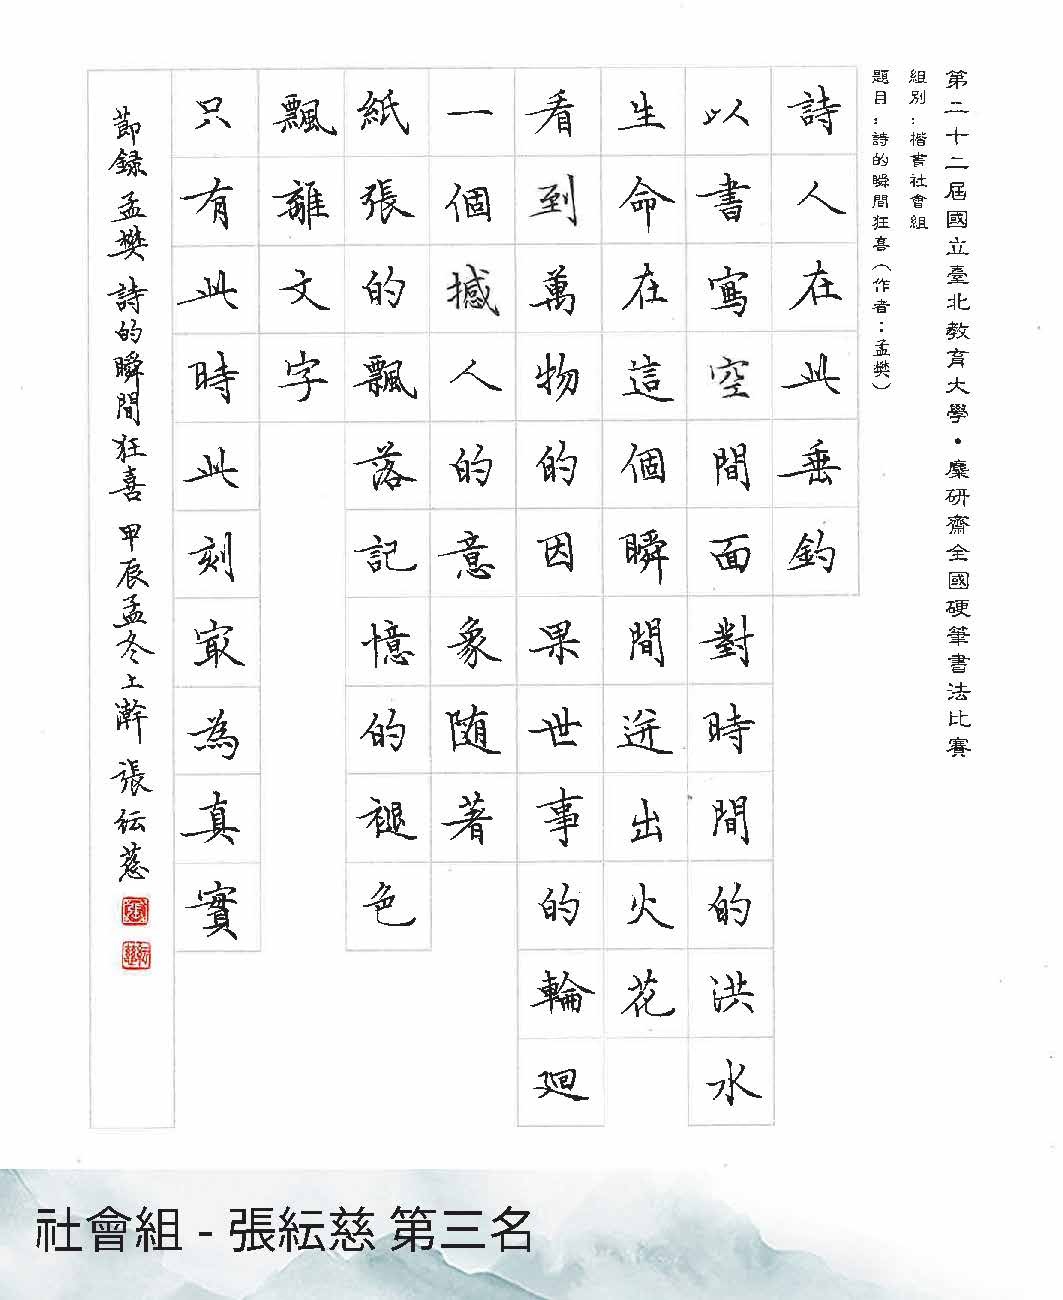 第二十二屆國立臺北教育大學•麋研齋全國硬筆書法比賽
組別：楷書社會組
題目：詩的瞬間狂喜（作者：孟樊）
詩人在此垂釣
以書寫空間面對時間的洪水
生命在這個瞬間迸出火花
看到萬物的因果世事的輪廻
一個撼人的意象随著
紙張的飄落記憶的褪色
飄離文字
只有此時此刻㝡為真實
節録孟樊詩的瞬間狂喜 甲辰孟冬上澣 張紜慈
社會組 - 張紜慈 第三名